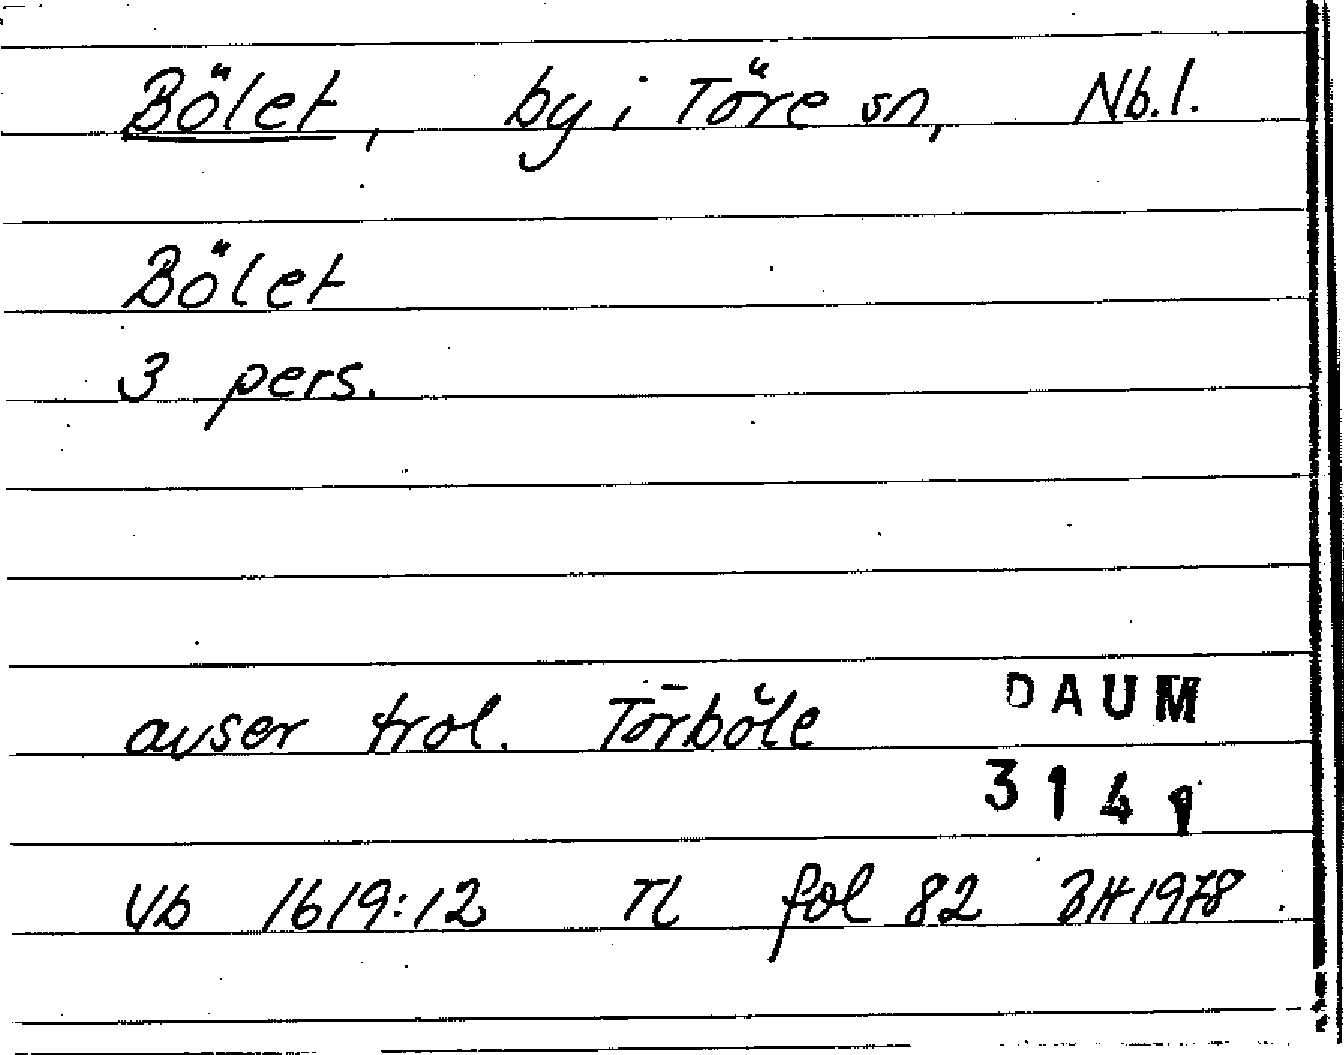 Bölet, by i Töre sn, Nb.l.
Bölet
3 pers.
avser trol. Törböle
DAUM
3141
Vb 1619:12 TL fol 82 BH 1978